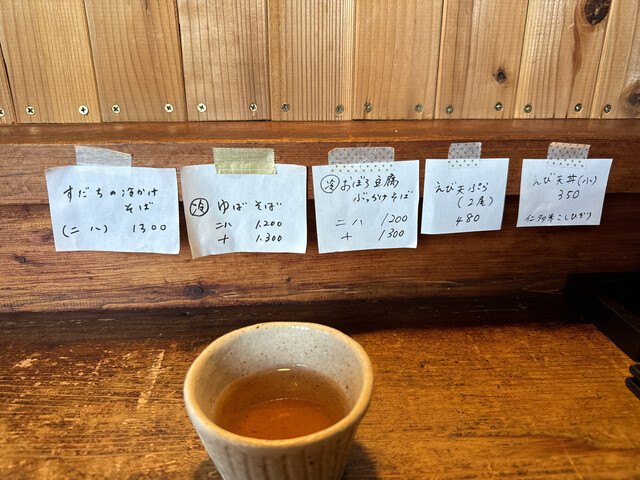 すだちの冷かけ
そば
(二八) 1300
冷 ゆば そば
二八 1.200
十 1.300
冷 おぼろ豆腐
ぶっかけそば
二八 1200
十 1300
えび天ぷら
(2尾)
480
えび天丼(小)
350
仁多米こしひかり